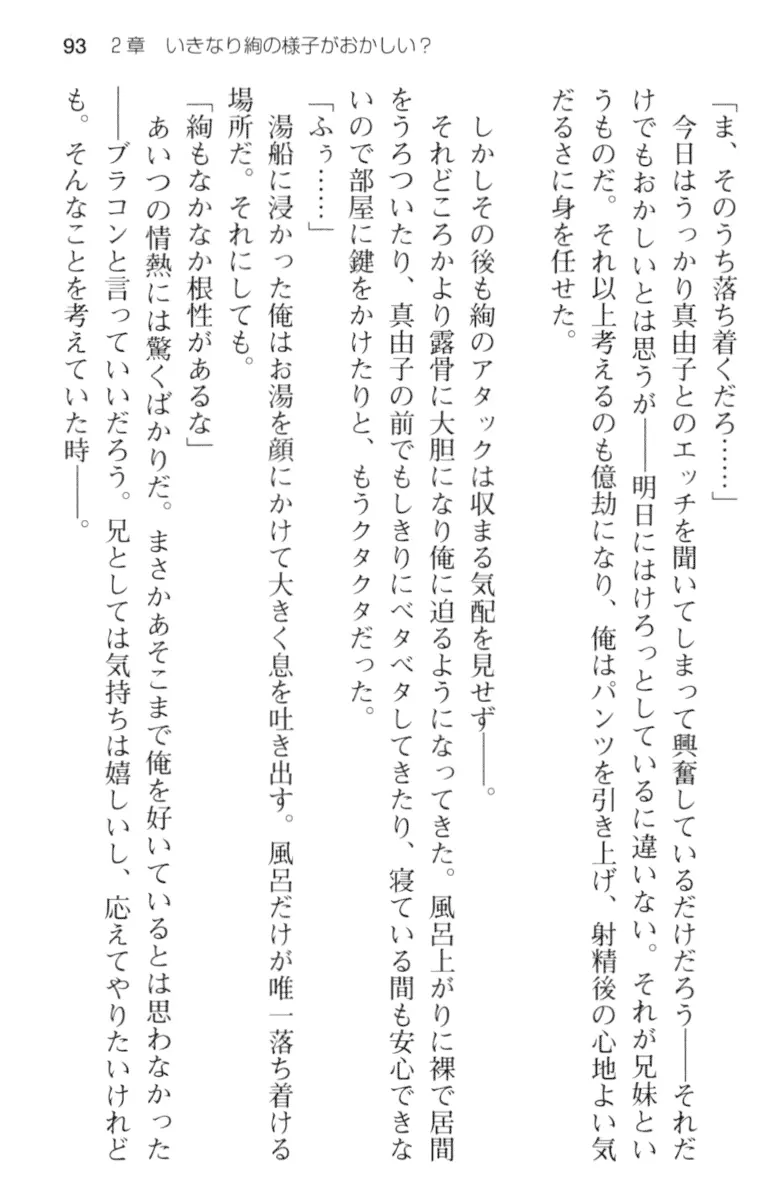 93　2章　いきなり絢の様子がおかしい？
「ま、そのうち落ち着くだろ……」
　今日はうっかり真由子とのエッチを聞いてしまって興奮しているだけだろう――それだ
けでもおかしいとは思うが――明日にはけろっとしているに違いない。それが兄妹とい
うものだ。それ以上考えるのも億劫になり、俺はパンツを引き上げ、射精後の心地よい気
だるさに身を任せた。
　しかしその後も絢のアタックは収まる気配を見せず――。
　それどころかより露骨に大胆になり俺に迫るようになってきた。風呂上がりに裸で居間
をうろついたり、真由子の前でもしきりにベタベタしてきたり、寝ている間も安心できな
いので部屋に鍵をかけたりと、もうクタクタだった。
「ふぅ……」
　湯船に浸かった俺はお湯を顔にかけて大きく息を吐き出す。風呂だけが唯一落ち着ける
場所だ。それにしても。
「絢もなかなか根性があるな」
　あいつの情熱には驚くばかりだ。まさかあそこまで俺を好いているとは思わなかった
――ブラコンと言っていいだろう。兄としては気持ちは嬉しいし、応えてやりたいけれど
も。そんなことを考えていた時――。